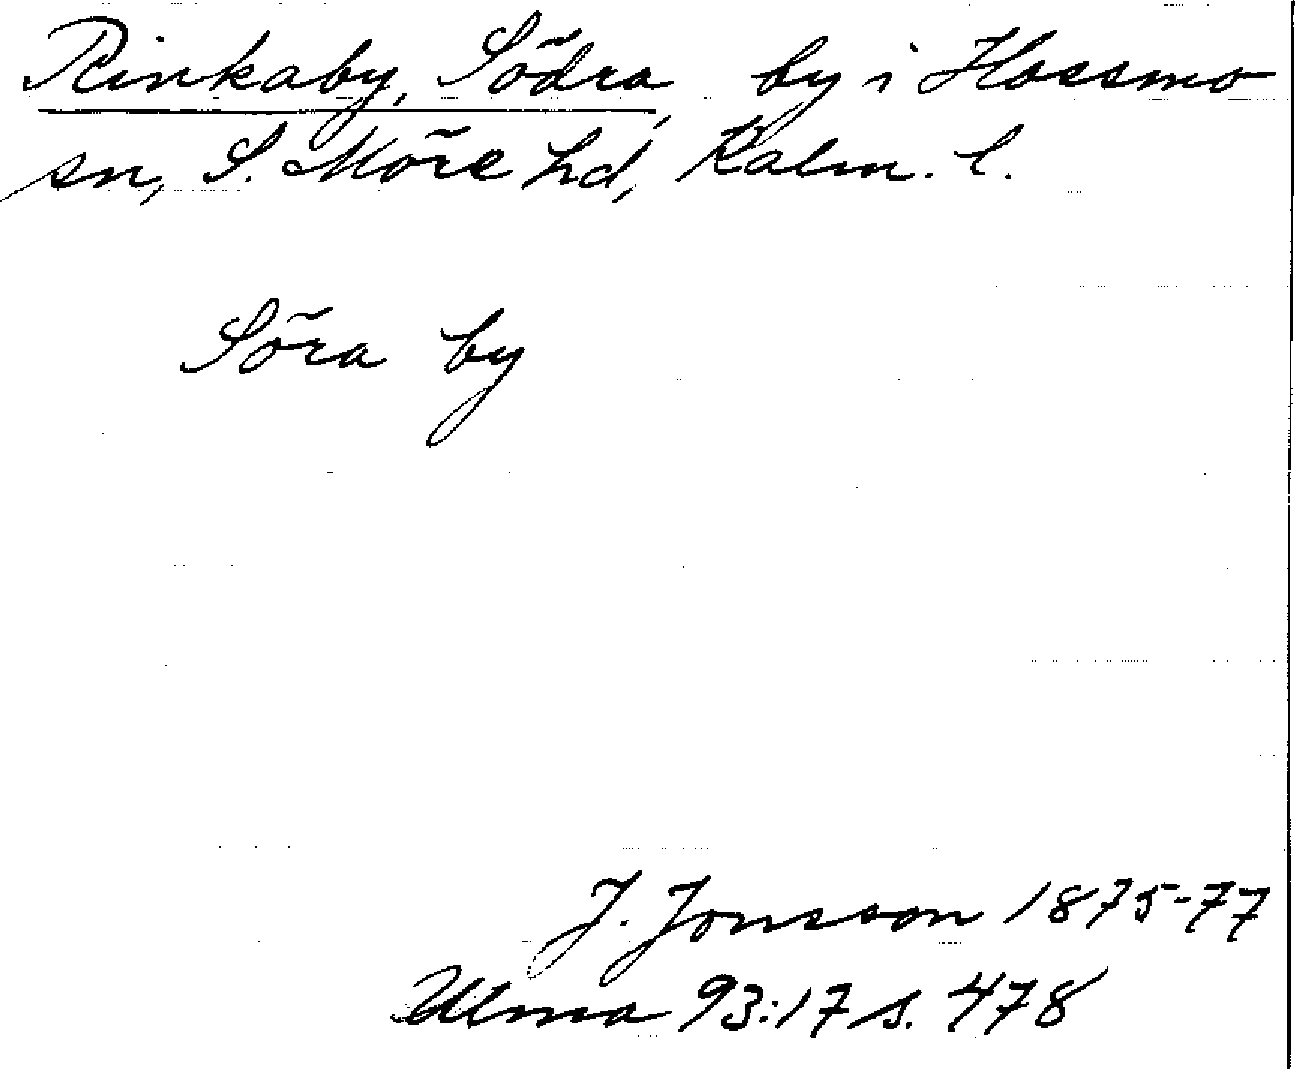 Rinkaby, Södra, by i Hossmo
sn, S. Möre hd, Kalm. l.
Söra by
J. Jonsson 1875-77
Ulma 93:17 s. 478